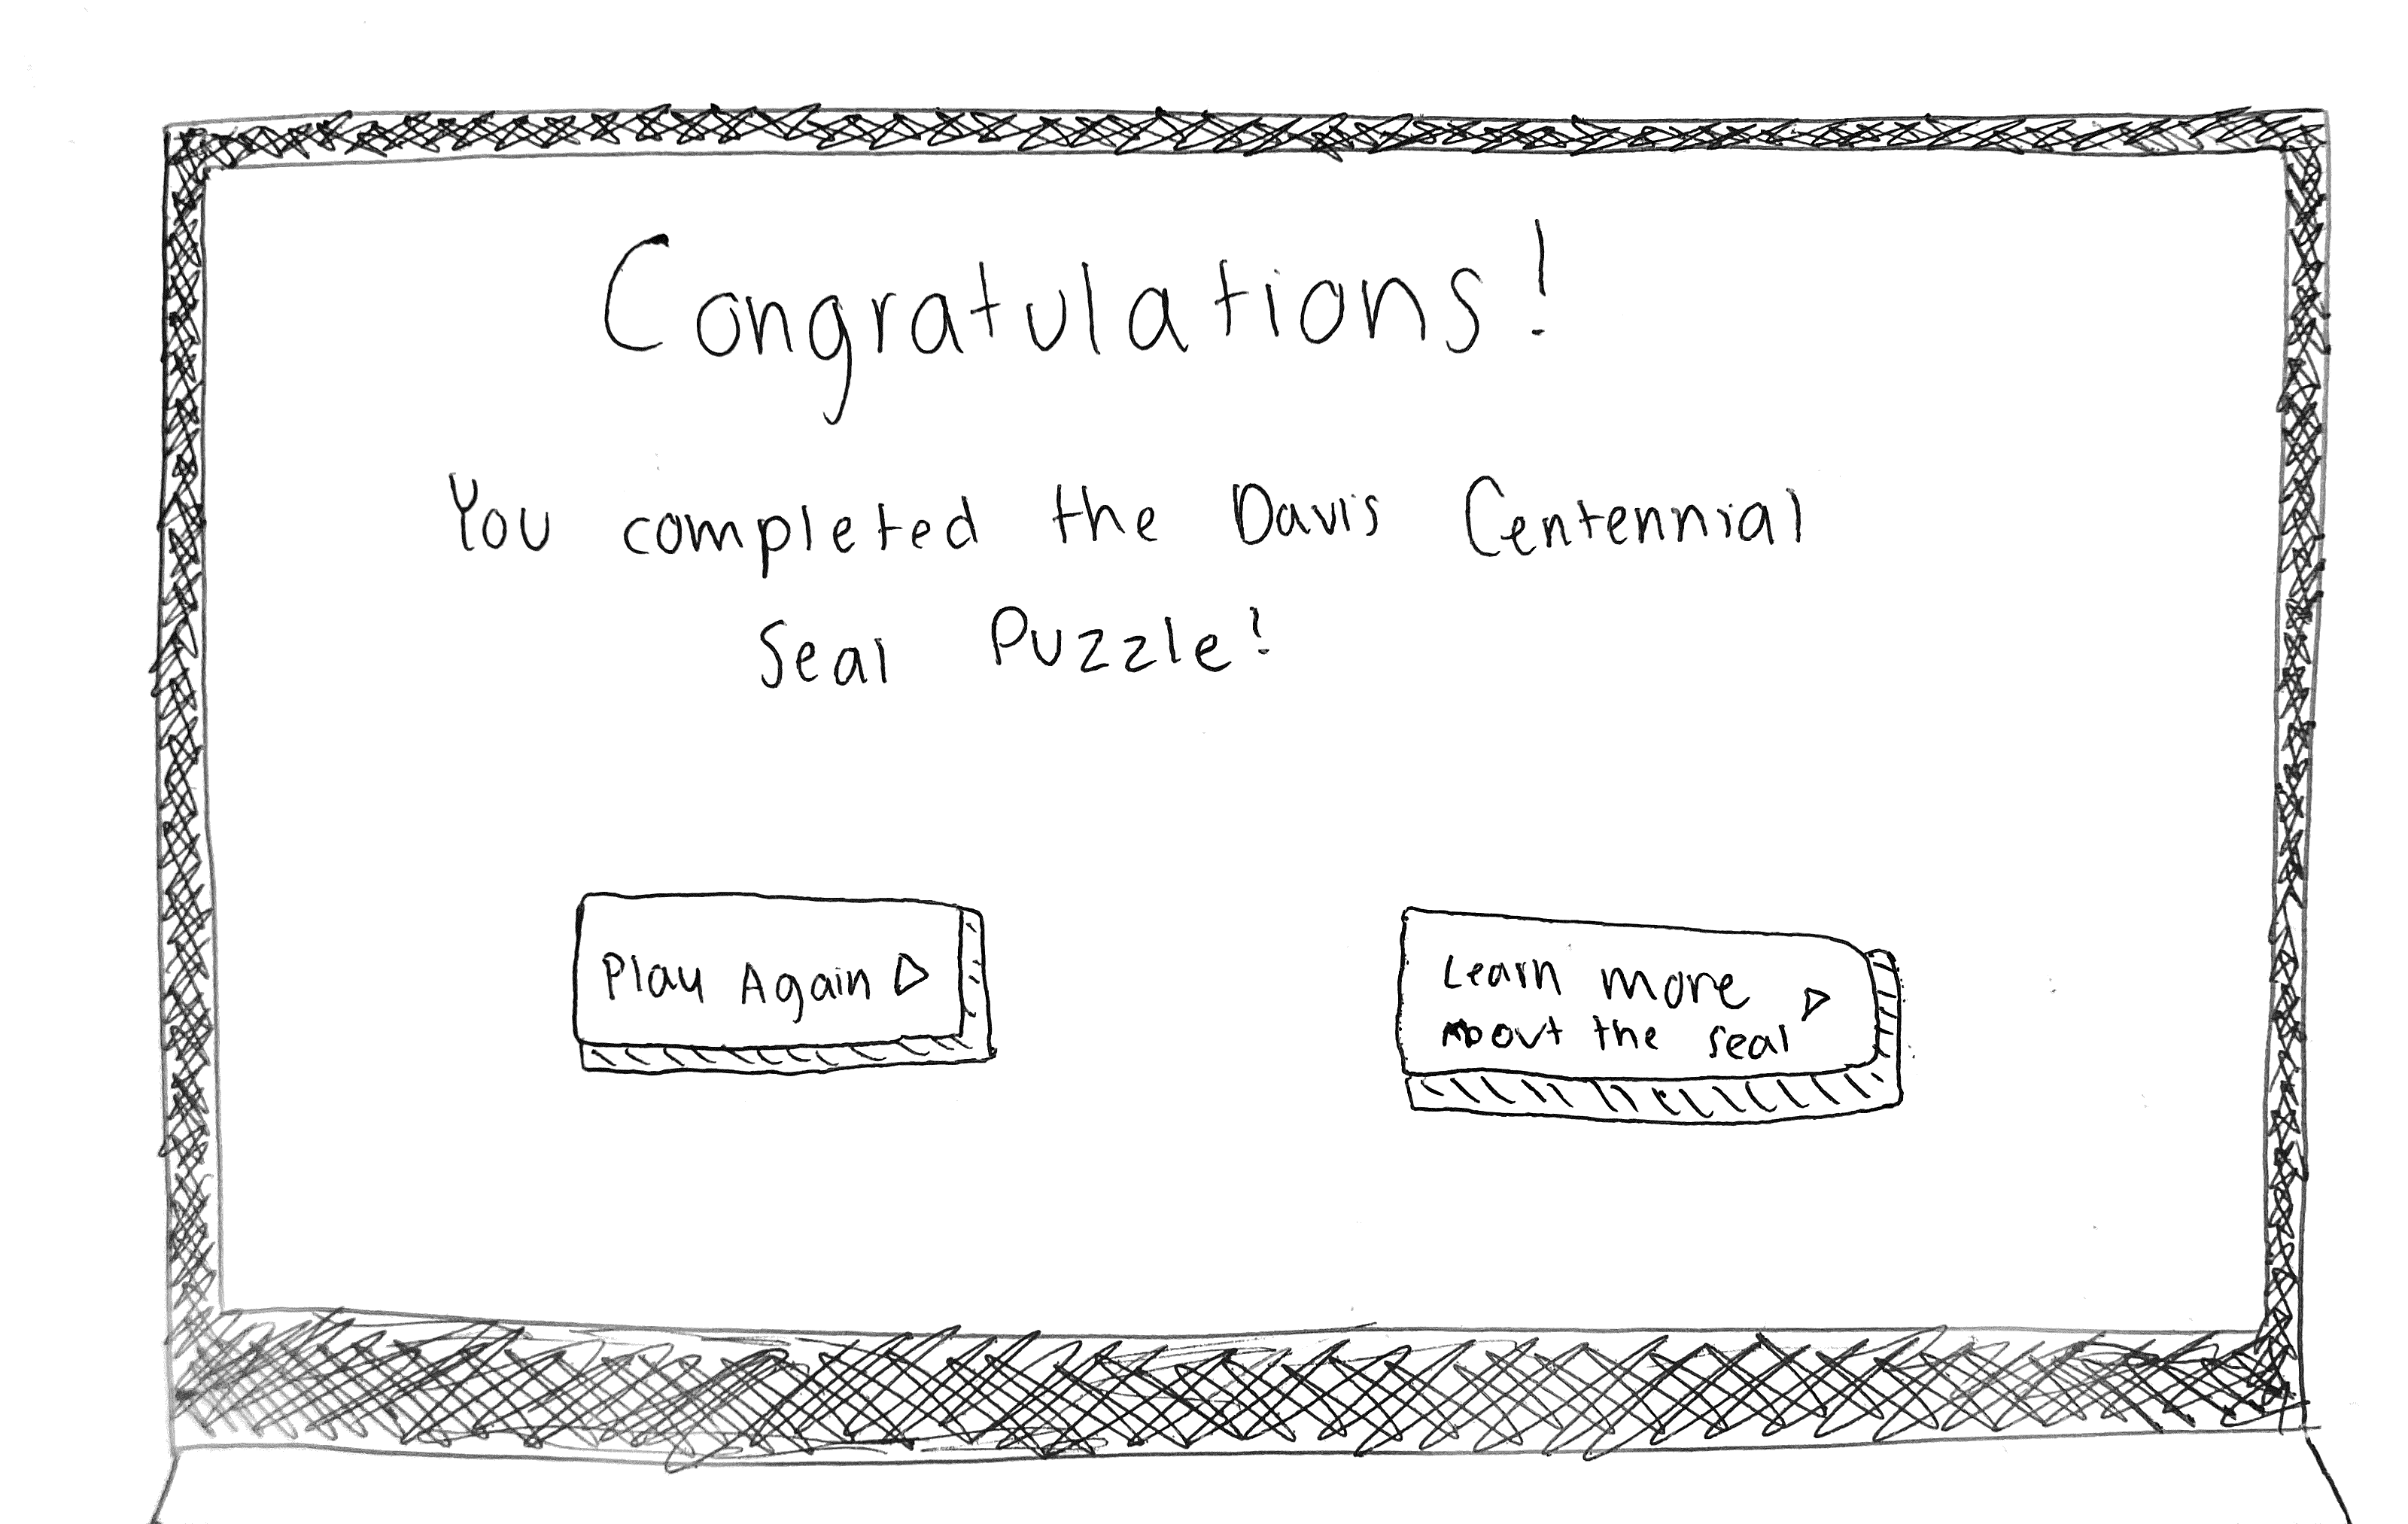 Congratulations!
You completed the Davis Centennial
Seal Puzzle!
Play Again
Learn more
About the seal